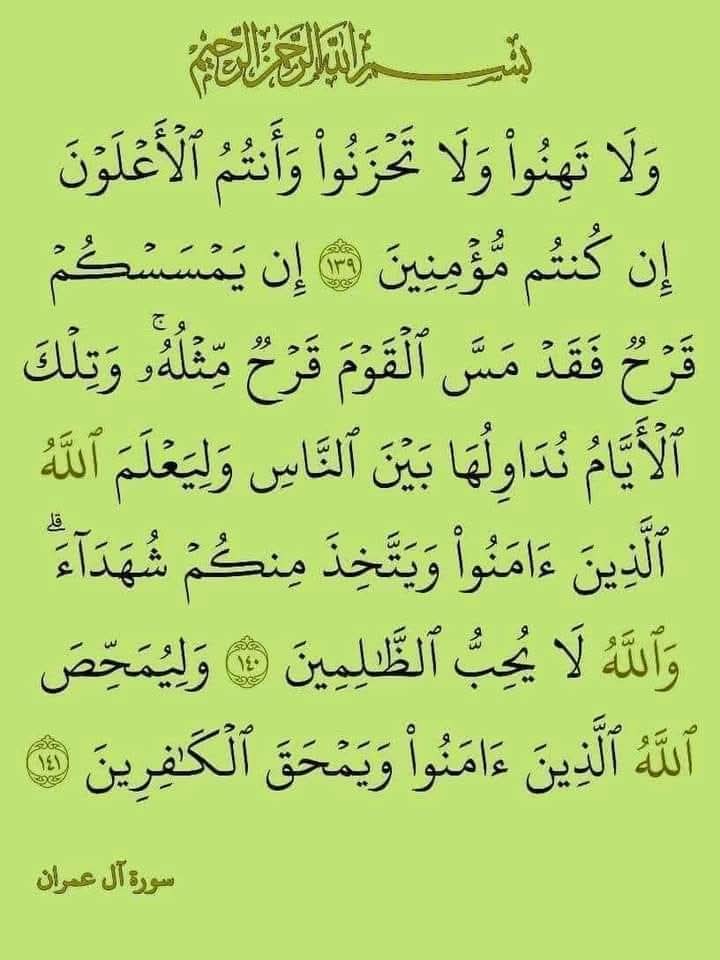 بسم الله الرحمن الرحيم
وَلَا تَهِنُوا۟ وَلَا تَحْزَنُوا۟ وَأَنتُمُ ٱلْأَعْلَوْنَ
إِن كُنتُم مُّؤْمِنِينَ ١٣٩ إِن يَمْسَسْكُمْ
قَرْحٌ فَقَدْ مَسَّ ٱلْقَوْمَ قَرْحٌ مِّثْلُهُۥۚ وَتِلْكَ
ٱلْأَيَّامُ نُدَاوِلُهَا بَيْنَ ٱلنَّاسِ وَلِيَعْلَمَ ٱللَّهُ
ٱلَّذِينَ ءَامَنُوا۟ وَيَتَّخِذَ مِنكُمْ شُهَدَآءَۗ
وَٱللَّهُ لَا يُحِبُّ ٱلظَّٰلِمِينَ ١٤٠ وَلِيُمَحِّصَ
ٱللَّهُ ٱلَّذِينَ ءَامَنُوا۟ وَيَمْحَقَ ٱلْكَٰفِرِينَ ١٤١
سورة آل عمران